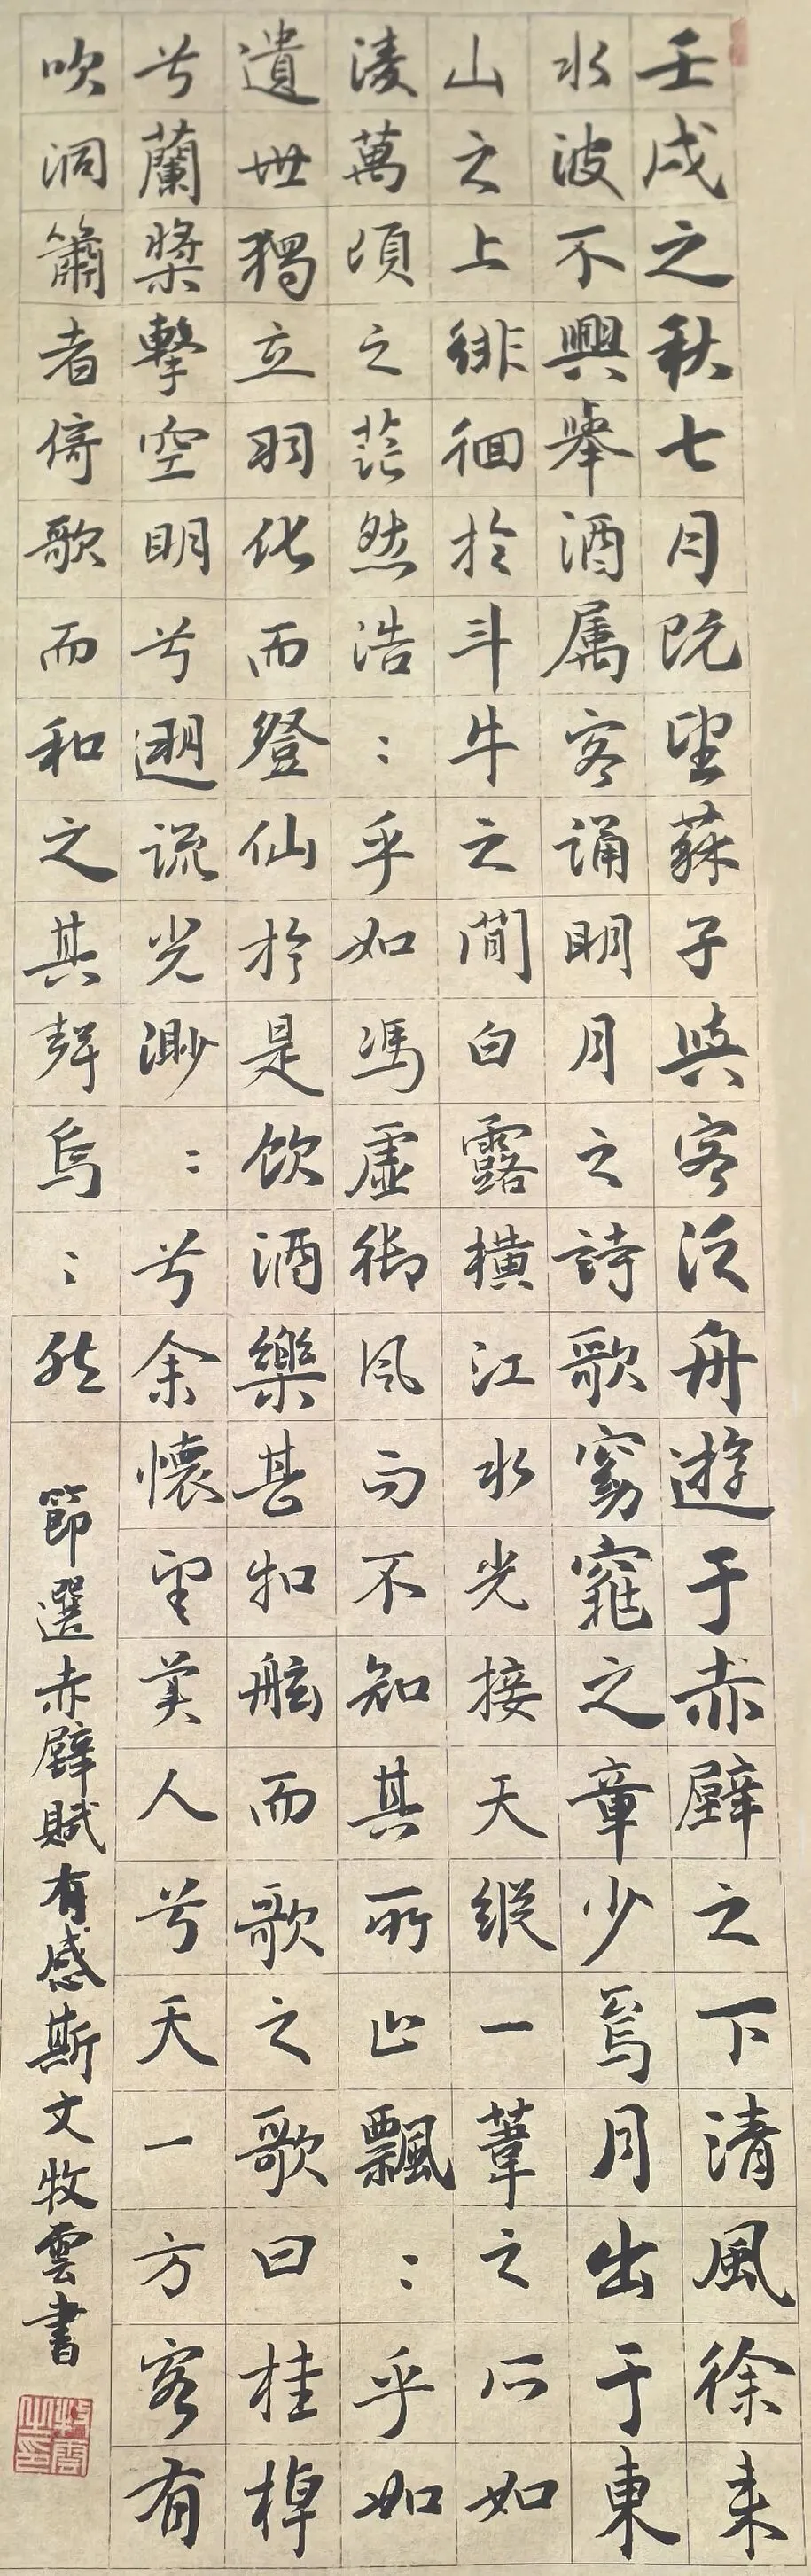 壬戌之秋七月既望蘇子與客泛舟遊于赤壁之下清風徐来
水波不興舉酒属客誦明月之詩歌窈窕之章少焉月出于東
山之上徘徊於斗牛之間白露横江水光接天縱一葦之所如
淩萬頃之茫然浩:乎如馮虛御風而不知其所止飄:乎如
遺世獨立羽化而登仙於是飲酒樂甚扣舷而歌之歌曰桂棹
兮蘭槳擊空明兮遡流光渺:兮余懷望美人兮天一方客有
吹洞簫者倚歌而和之其聲烏:然
節選赤壁賦有感斯文牧雲書
牧雲之印